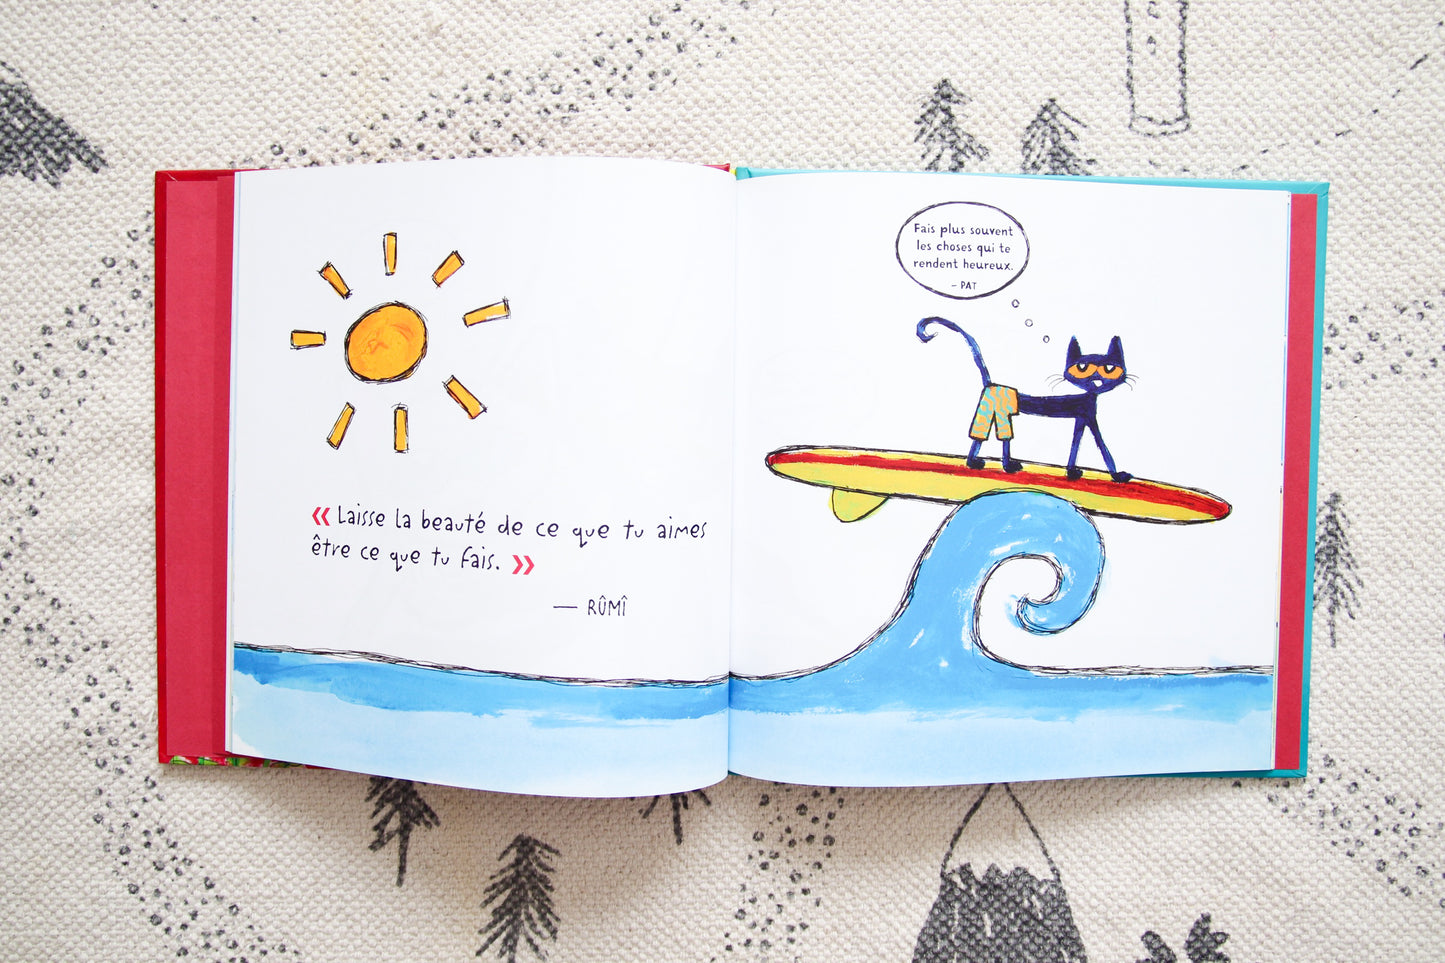 « Laisse la beauté de ce que tu aimes
être ce que tu fais. »
— RÛMÎ
Fais plus souvent
les choses qui te
rendent heureux.
– PAT